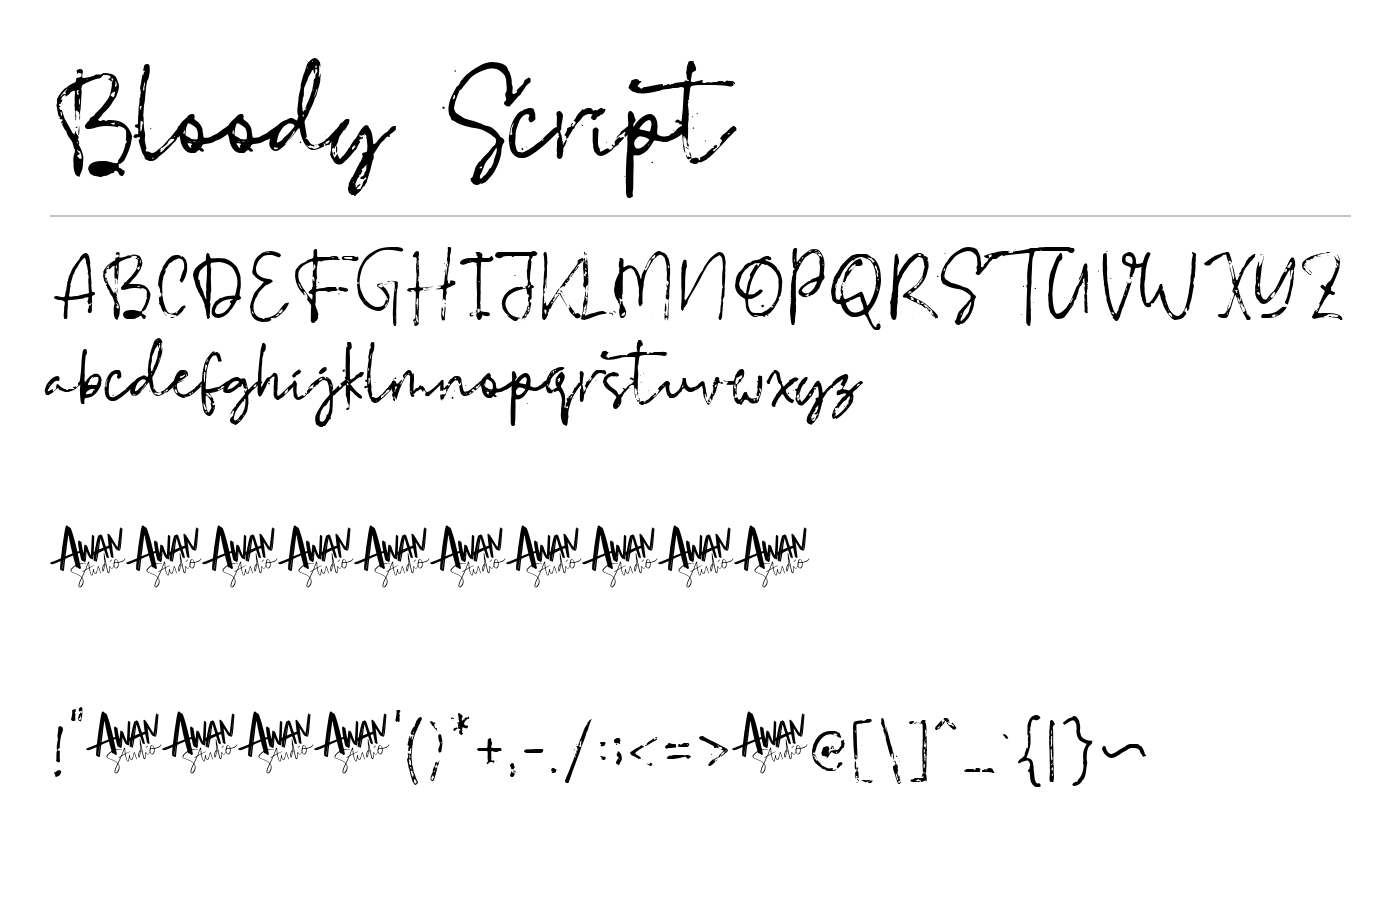 Bloody Script
ABCDEFGHIJKLMNOPQRSTUVWXYZ
abcdefghijklmnopqrstuvwxyz
AWAN Studio AWAN Studio AWAN Studio AWAN Studio AWAN Studio AWAN Studio AWAN Studio AWAN Studio AWAN Studio AWAN Studio
!" AWAN Studio AWAN Studio AWAN Studio AWAN Studio '()*+,-./:;<=> AWAN Studio @[\]^_`{|}~